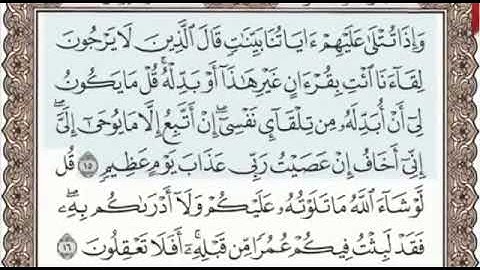 وَإِذَا تُتْلَىٰ عَلَيْهِمْ ءَايَاتُنَا بَيِّنَٰتٍ قَالَ ٱلَّذِينَ لَا يَرْجُونَ
لِقَآءَنَا ٱئْتِ بِقُرْءَانٍ غَيْرِ هَٰذَآ أَوْ بَدِّلْهُ ۚ قُلْ مَا يَكُونُ
لِىٓ أَنْ أُبَدِّلَهُۥ مِن تِلْقَآئِ نَفْسِىٓ ۖ إِنْ أَتَّبِعُ إِلَّا مَا يُوحَىٰٓ إِلَىَّ ۖ
إِنِّىٓ أَخَافُ إِنْ عَصَيْتُ رَبِّى عَذَابَ يَوْمٍ عَظِيمٍ ١٥ قُل
لَّوْ شَآءَ ٱللَّهُ مَا تَلَوْتُهُۥ عَلَيْكُمْ وَلَآ أَدْرَىٰكُم بِهِۦ ۖ
فَقَدْ لَبِثْتُ فِيكُمْ عُمُرًا مِّن قَبْلِهِۦٓ ۚ أَفَلَا تَعْقِلُونَ ١٦